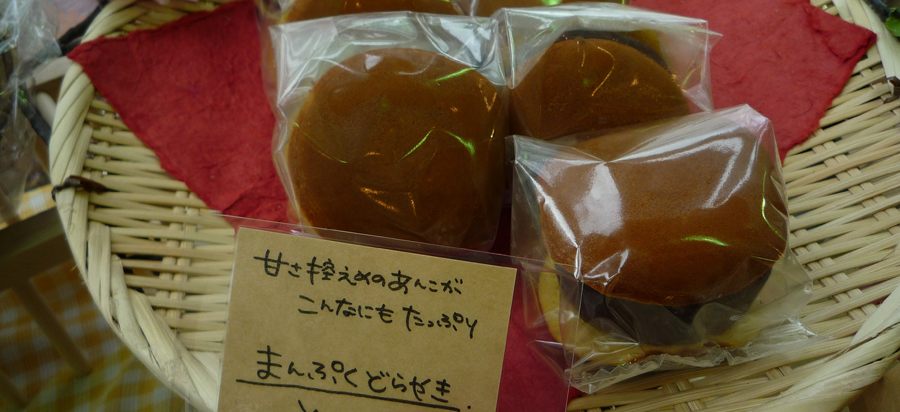 甘さ控えめのあんこが
こんなにもたっぷり
まんぷくどらやき